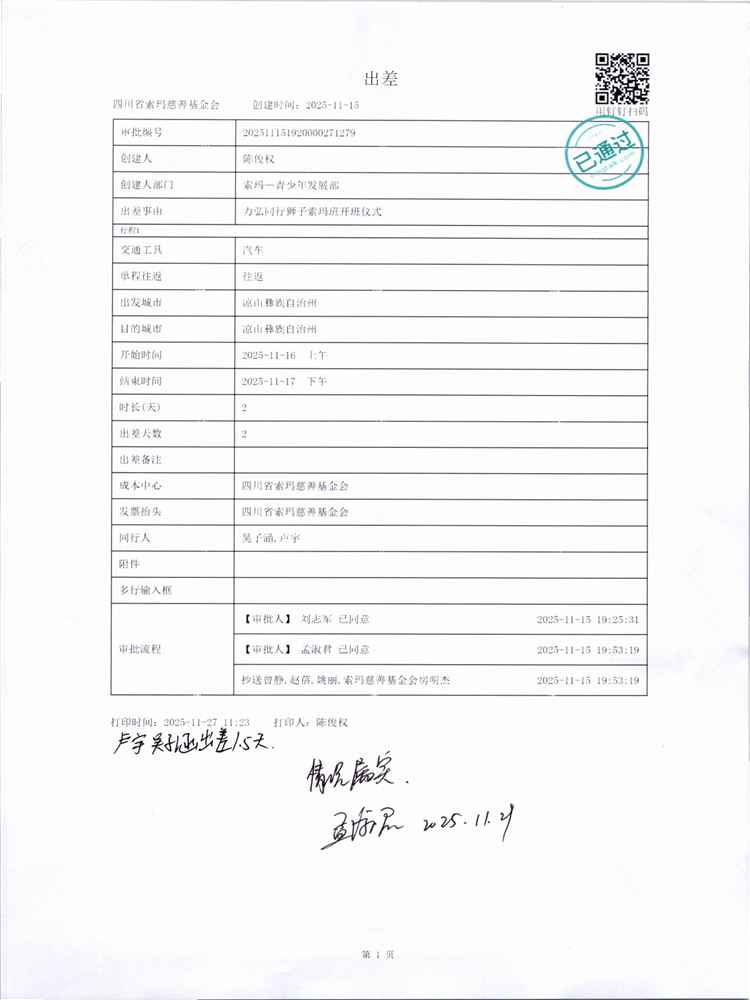 出差
四川省索玛慈善基金会 创建时间：2025-11-15
用钉钉扫码
已通过
dingtalk.com
审批编号 202511151920000271279
创建人 陈俊权
创建人部门 索玛—青少年发展部
出差事由 力弘同行狮子索玛班开班仪式
行程1
交通工具 汽车
单程往返 往返
出发城市 凉山彝族自治州
目的城市 凉山彝族自治州
开始时间 2025-11-16 上午
结束时间 2025-11-17 下午
时长(天) 2
出差天数 2
出差备注
成本中心 四川省索玛慈善基金会
发票抬头 四川省索玛慈善基金会
同行人 吴子涵,卢宇
附件
多行输入框
审批流程
【审批人】 刘志军 已同意 2025-11-15 19:25:31
【审批人】 孟淑君 已同意 2025-11-15 19:53:19
抄送曾静,赵蓓,姚丽,索玛慈善基金会房明杰 2025-11-15 19:53:19
打印时间：2025-11-27 11:23 打印人：陈俊权
卢宇 吴子涵出差1.5天.
情况属实.
孟淑君 2025.11.29
第 1 页